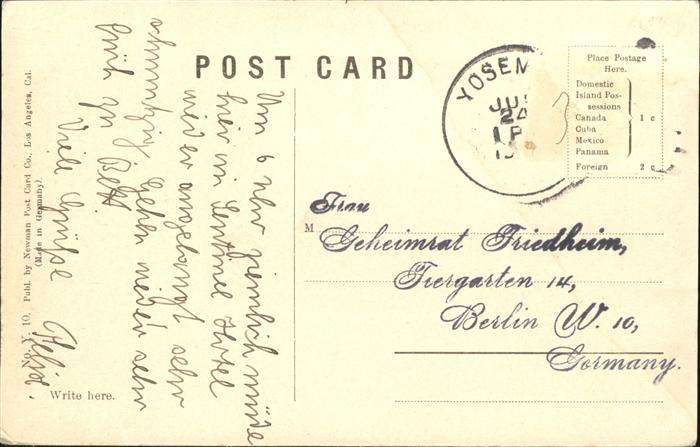 POST CARD
Um 6 Uhr ziemlich müde
hier im Sentinel Hotel
wieder angelangt sehr
schmutzig! Gehen wieder sehr
früh zu Bett.
Viele Grüße
Felix.
Write here.
No. Y 10. Publ. by Newman Post Card Co., Los Angeles, Cal.
(Made in Germany)
YOSEM
24
Place Postage
Here.
Domestic
Island Pos-
sessions
Canada
Cuba
Mexico
Panama
1 c
Foreign 2 c
M
Frau
Geheimrat Friedheim,
Tiergarten 14,
Berlin W. 10,
Germany.